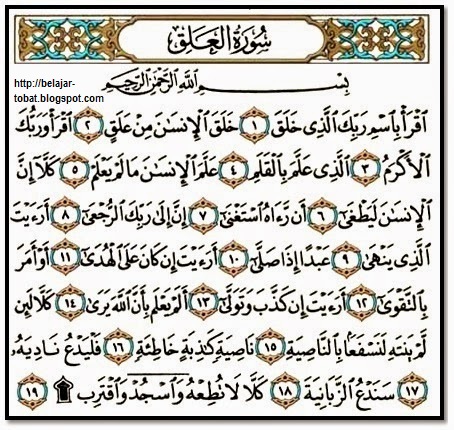 سُورَةُ العَلَق
http://belajar-
tobat.blogspot.com
بِسْمِ اللَّهِ الرَّحْمَٰنِ الرَّحِيمِ
اقْرَأْ بِاسْمِ رَبِّكَ الَّذِي خَلَقَ ١ خَلَقَ الْإِنسَٰنَ مِنْ عَلَقٍ ٢ اقْرَأْ وَرَبُّكَ
الْأَكْرَمُ ٣ الَّذِي عَلَّمَ بِالْقَلَمِ ٤ عَلَّمَ الْإِنسَٰنَ مَا لَمْ يَعْلَمْ ٥ كَلَّا إِنَّ
الْإِنسَٰنَ لَيَطْغَىٰ ٦ أَن رَّءَاهُ اسْتَغْنَىٰ ٧ إِنَّ إِلَىٰ رَبِّكَ الرُّجْعَىٰ ٨ أَرَءَيْتَ
الَّذِي يَنْهَىٰ ٩ عَبْدًا إِذَا صَلَّىٰ ١٠ أَرَءَيْتَ إِن كَانَ عَلَى الْهُدَىٰ ١١ أَوْ أَمَرَ
بِالتَّقْوَىٰ ١٢ أَرَءَيْتَ إِن كَذَّبَ وَتَوَلَّىٰ ١٣ أَلَمْ يَعْلَم بِأَنَّ اللَّهَ يَرَىٰ ١٤ كَلَّا لَئِن
لَّمْ يَنتَهِ لَنَسْفَعًا بِالنَّاصِيَةِ ١٥ نَاصِيَةٍ كَٰذِبَةٍ خَاطِئَةٍ ١٦ فَلْيَدْعُ نَادِيَهُۥ
١٧ سَنَدْعُ الزَّبَانِيَةَ ١٨ كَلَّا لَا تُطِعْهُ وَاسْجُدْ وَاقْتَرِب ۩ ١٩